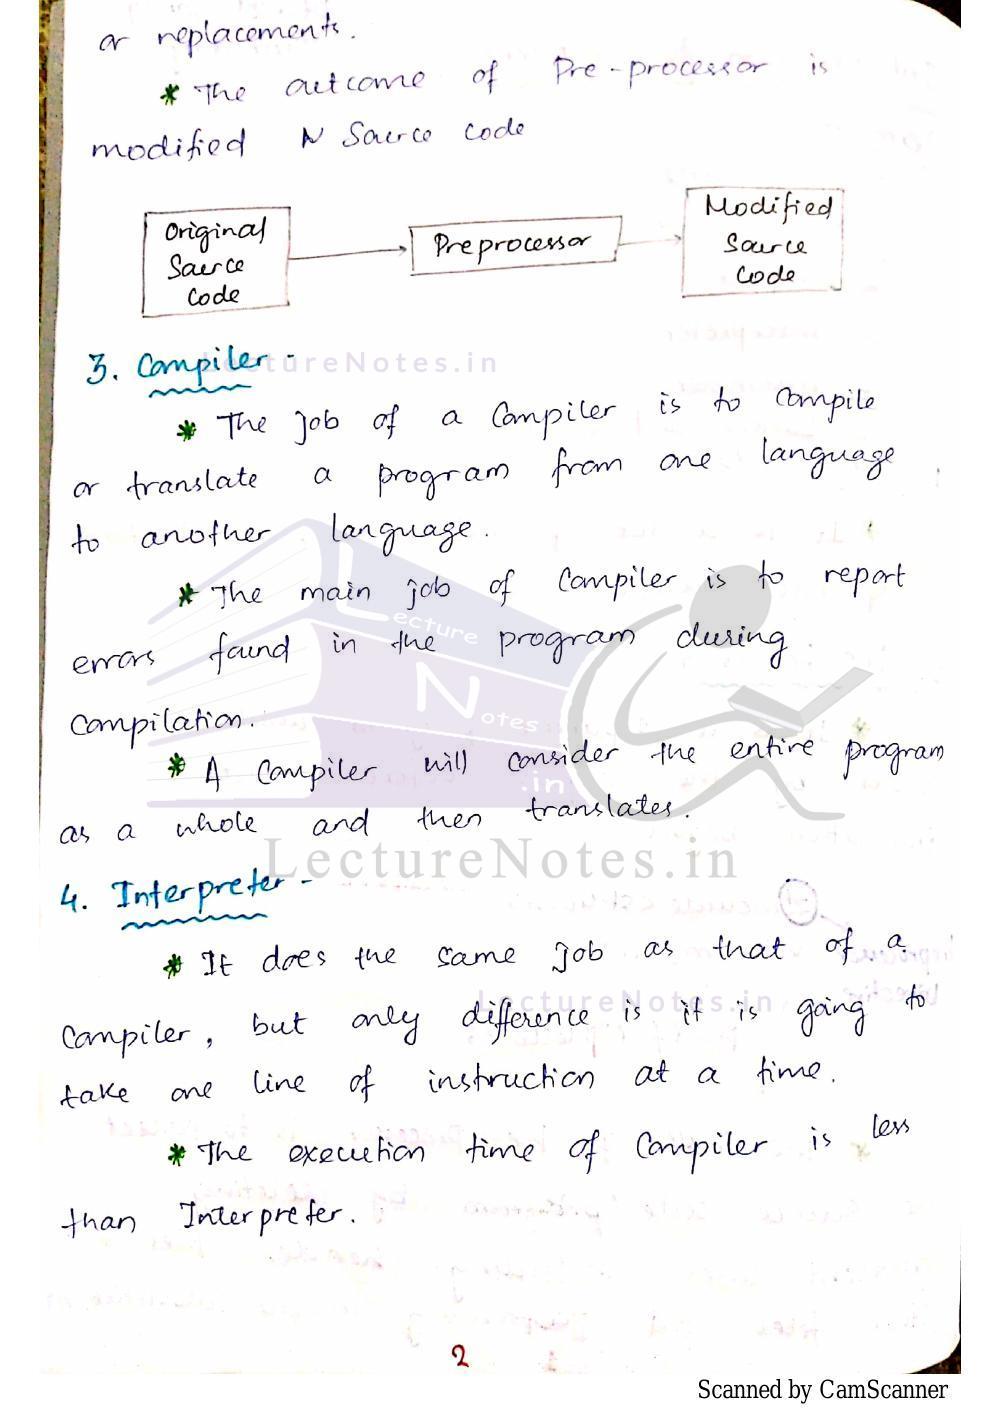 or replacements.
* The outcome of Pre-processor is
modified N Source code
Original
Source
Code
Preprocessor
Modified
Source
Code
3. Compiler -
LectureNotes.in
* The job of a Compiler is to compile
or translate a program from one language
to another language.
* The main job of Compiler is to report
errors found in the program during
Compilation.
Lecture
Notes
.in
* A Compiler will consider the entire program
as a whole and then translates.
LectureNotes.in
4. Interpreter -
* It does the same job as that of a
LectureNotes.in
Compiler, but only difference is it is going to
take one line of instruction at a time.
* The execution time of Compiler is less
than Interpreter.
2
Scanned by CamScanner